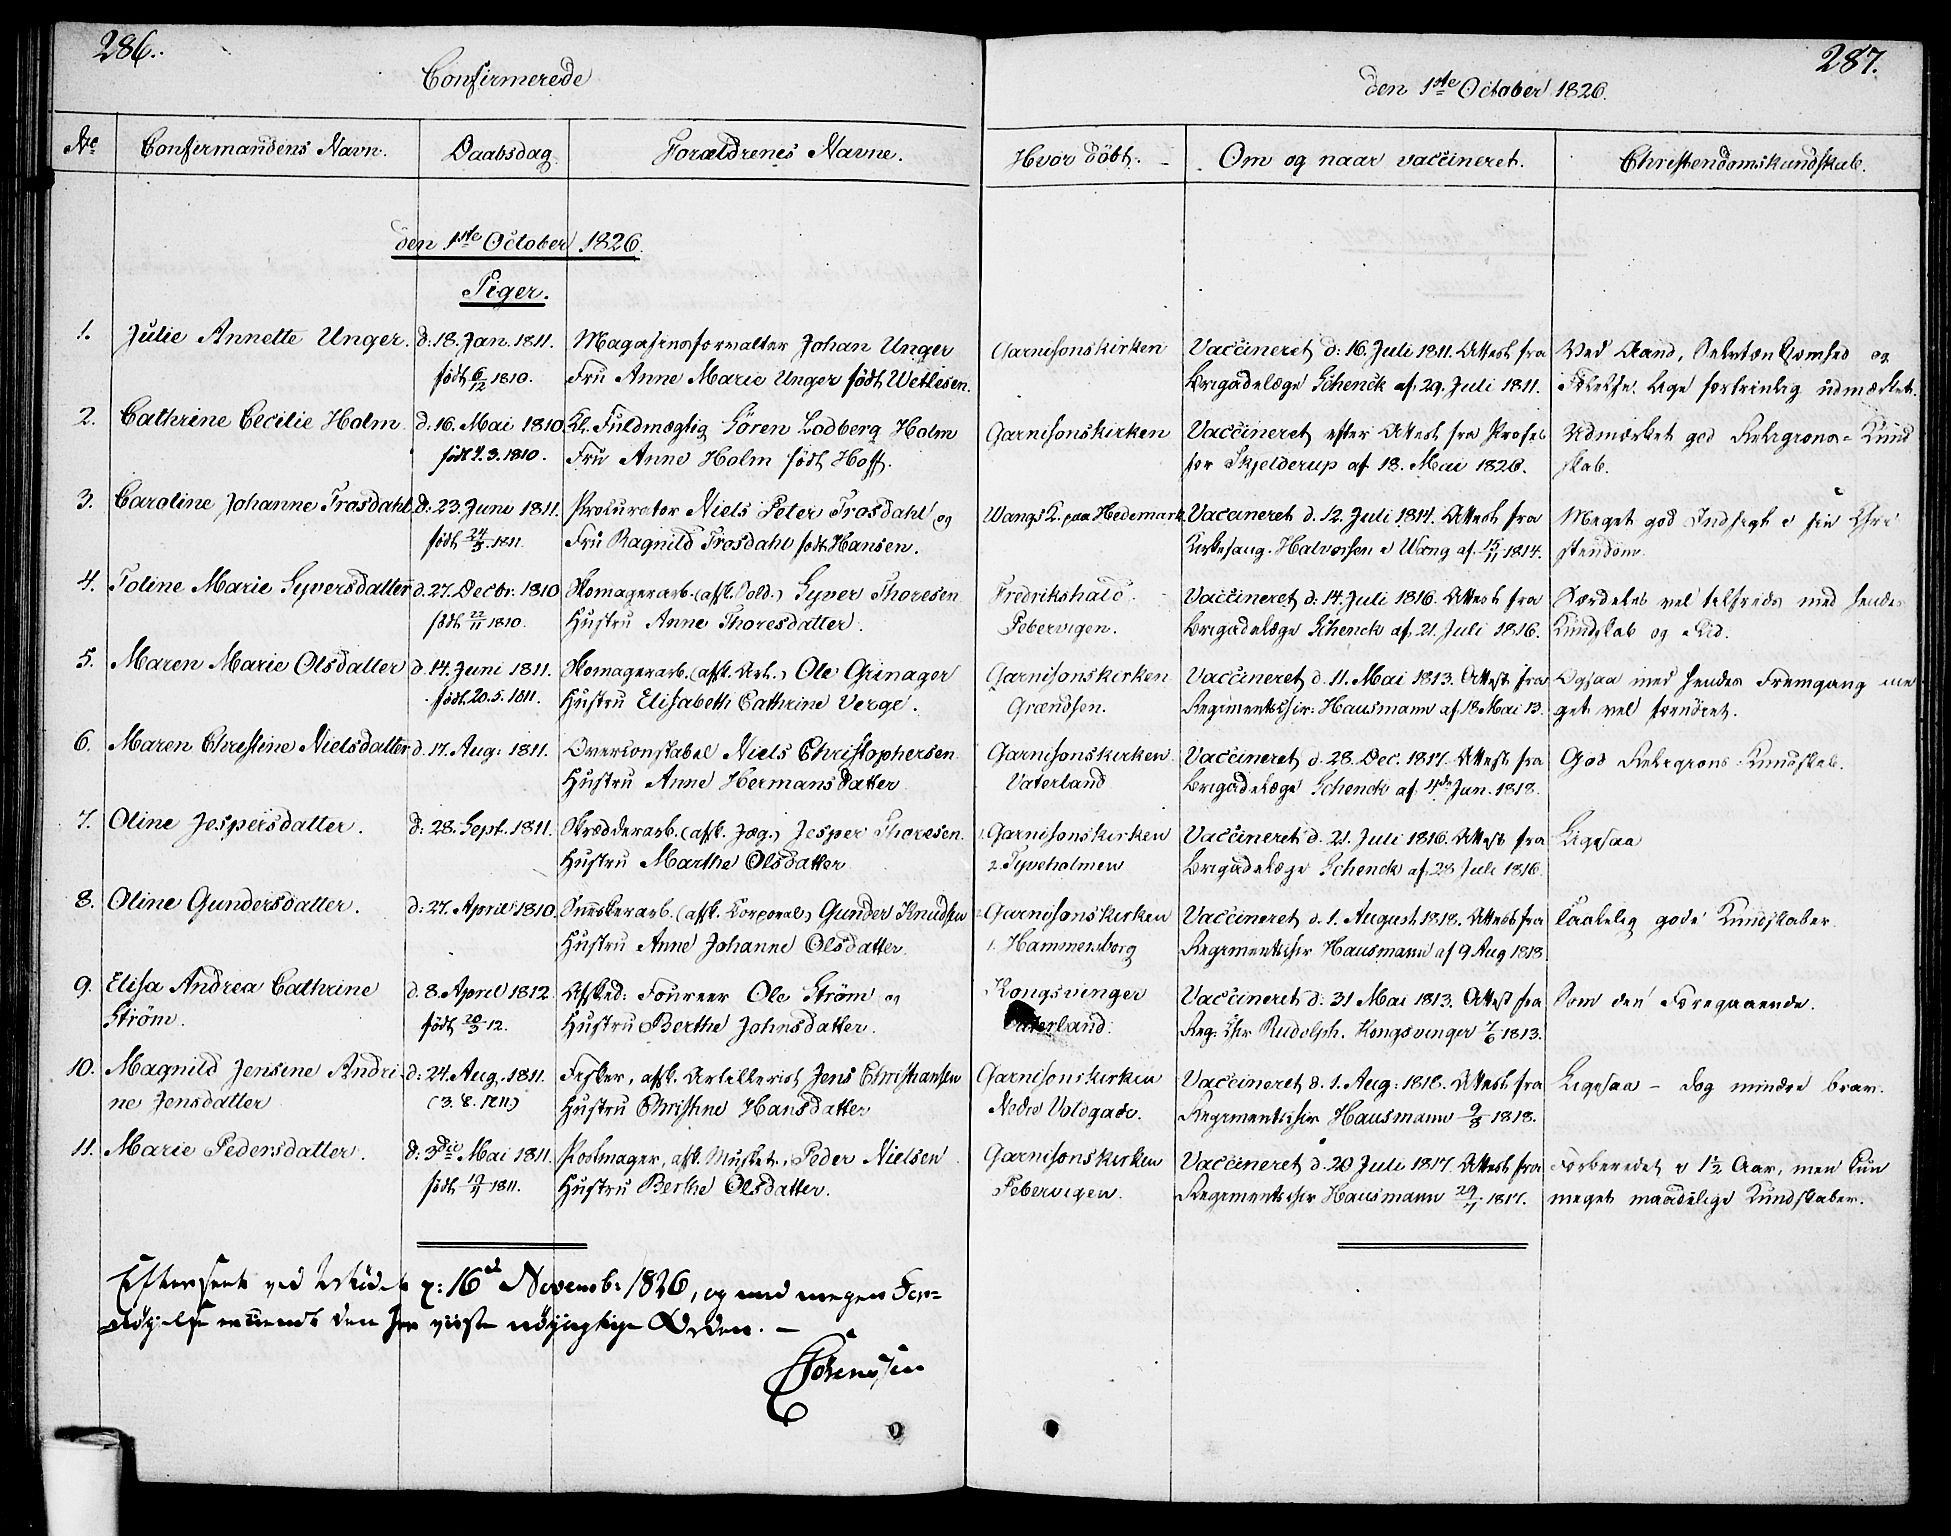 286.
Confirmerede
No Confirmandens Navn. Daabsdag. Forældrenes Navne.
den 1ste October 1826.
Piger.
1. Julie Annette Unger. d. 18. Jan. 1811. Magasinsforvalter Johan Unger
født 6/12 1810. Fru Anne Marie Unger født Wetlesen.
2. Cathrine Cecilie Holm d. 16. Mai 1810. Fuldmægtig Sören Lodberg Holm
født 4. 3. 1810. Fru Anne Holm født Hoff.
3. Caroline Johanne Frosdahl d. 23. Juni 1811. Procurator Niels Peter Frosdahl og
født 24/3 1811. Fru Ragnild Frosdahl født Hansen.
4. Toline Marie Syversdatter d. 27. Decbr. 1810 Skomagerarb. (afsk. Sold.) Syver Thoresen
født 22/11 1810. Hustru Anne Thoresdatter.
5. Maren Marie Olsdatter d. 14. Juni 1811. Skomagerarb. (afsk. Art.) Ole Grinager
født 20. 5. 1811. Hustru Elisabeth Cathrine Verge.
6. Maren Christine Nielsdatter d. 17. Aug: 1811. Overconstabel Niels Christophersen
Hustru Anne Hermansdatter
7. Oline Jespersdatter. d: 28. Sept. 1811. Skrædderarb. (afsk. Jæg.) Jesper Thoresen.
Hustru Marthe Olsdatter
8. Oline Gundersdatter. d: 27. April 1810. Snedkerarb. (afsk. Corporal) Gunder Knudsen
Hustru Anne Johanne Olsdatter.
9. Elisa Andrea Cathrine d. 8. April 1812 Afsked: Foureer Ole Ström og
Ström. født 20/3 12. Hustru Berthe Johnsdatter.
10. Magnild Jensine Andri- d: 24. Aug. 1811. Fisker, afsk. Artillerist Jens Christiansen
ne Jensdatter (3. 8. 1811) Hustru Christine Hansdatter
11. Marie Pedersdatter. d: 3die Mai 1811. afsk. Musket. Peder Nielsen
født 1811. Hustru Berthe Olsdatter.
Efterseet ved 16de Novemb: 1826, og med megen For-
nöjelse erkiendt den her viiste nöjagtige Orden. —
Sörenssen
287.
den 1ste October 1826.
Hvor döbt. Om og naar vaccineret. Christendomskundskab.
Garnisonskirken Vaccineret d: 16. Juli 1811. Attest fra Ved Aand, Selvtænksomhed og
Brigadelæge Schenck af 29. Juli 1811. Følelse lige fortrinlig udmærket.
Garnisonskirken Vaccineret efter Attest fra Profes Udmærket god Religions-Kund
sor Skjelderup af 18. Mai 1826. skab.
Wangs K. paa Hedemark Vaccineret d. 12. Juli 1814. Attest fra Meget god Indsigt i sin Chri
Kirkesang. Halvorsen i Wang af 15/11 1814. stendom.
Fredrikshald. Vaccineret d: 14. Juli 1816. Attest fra Særdeles vel tilfreds med hendes
Pebervigen. Brigadelæge Schenck af 21. Juli 1816. Kundskab og Flid.
Garnisonskirken Vaccineret d. 11. Mai 1813. Attest fra Ogsaa med hendes Fremgang me
Grændsen. Regimentschir: Hausmann af 18 Mai 13. get vel fornöiet.
Garnisonskirken Vaccineret d. 28. Dec. 1817. Attest fra God Religions-Kundskab.
Vaterland Brigadelæge Schenck af 4de Jan. 1818.
1. Garnisonskirken Vaccineret d. 21. Juli 1816. Attest fra Ligesaa
2. Tyveholmen Brigadelæge Schenck af 28 Juli 1816.
Garnisonskirken Vaccineret d. 1. August 1818. Attest fra Taalelig gode Kundskaber.
1. Hammersborg Regimentschir Hausmann af 9 Aug 1818.
Kongsvinger Vaccineret d: 31 Mai 1813. Attest fra Som den Foregaaende.
Vaterland. Reg: Chir Rudolph. Kongsvinger 7/6 1813.
Garnisonskirken Vaccineret d. 1. Aug: 1818. Attest fra Ligesaa — dog mindre brav.
Nedre Voldgade. Regimentschir Hausmann 9/8 1818.
Garnisonskirken Vaccineret d. 20 Juli 1817. Attest fra Forberedet i 1½ Aar, men kun
Pebervigen. Regimentschir Hausmann 29/7 1817. meget maadelige Kundskaber.